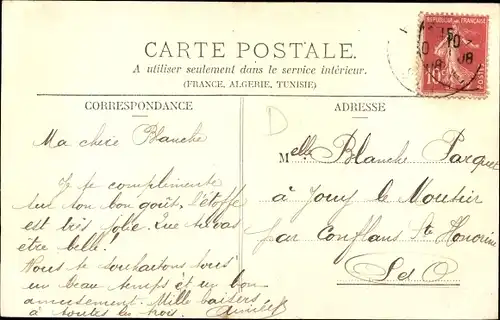 CARTE POSTALE.
A utiliser seulement dans le service intérieur.
(FRANCE, ALGERIE, TUNISIE)
CORRESPONDANCE
ADRESSE
D
Ma chère Blanche
Je te complimente
sur ton bon goût, l'étoffe
est très jolie. Que tu vas
être belle!
Nous te souhaitons tous
un beau temps et un bon
amusement. Mille baisers
à toutes les trois.
Melle Blanche
à Jouy le Moutier
par Conflans Ste Honorine
S d O
15
10
08
10
POSTES